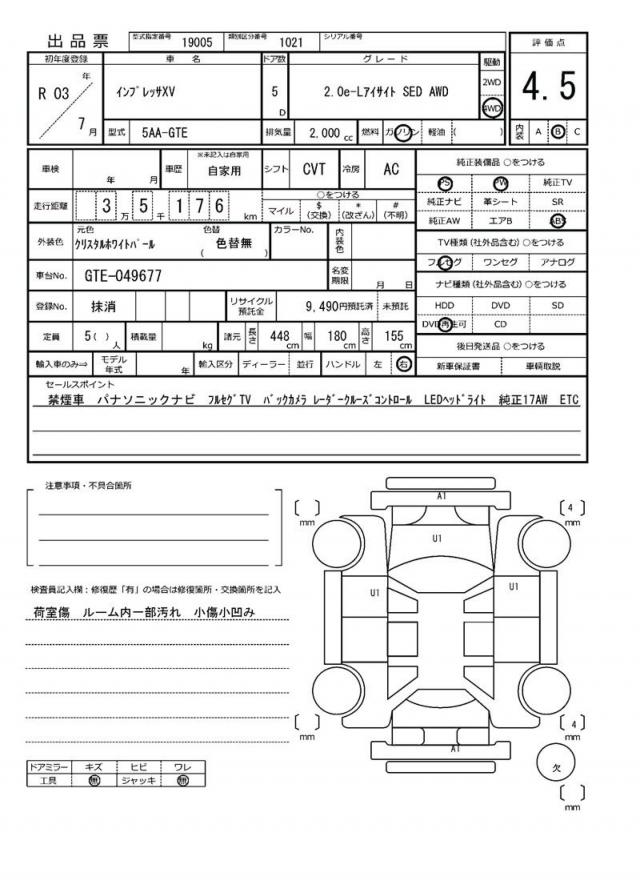 出品票 型式指定番号 19005 類別区分番号 1021 シリアル番号
評価点
4.5
初年度登録 車名 ドア数 グレード 駆動
R 03 年 7 月
ｲﾝﾌﾟﾚｯｻXV 5 D 2.0e-Lｱｲｻｲﾄ SED AWD 2WD 4WD
型式 5AA-GTE 排気量 2,000 cc 燃料 ガソリン 軽油 ( ) 内装 A B C
車検 年 月 車歴 ※未記入は自家用 自家用 シフト CVT 冷房 AC
走行距離 3 万 5 千 1 7 6 km ○をつける
マイル $ (交換) * (改ざん) # (不明)
外装色 元色 色替 カラーNo. 内装色
ｸﾘｽﾀﾙﾎﾜｲﾄﾊﾟｰﾙ ( 色替無 )
車台No. GTE-049677 名変期限 月 日
登録No. 抹消 リサイクル預託金 9,490円預託済 未預託
定員 5( )人 積載量 kg 諸元 長さ 448 cm 幅 180 cm 高さ 155 cm
輸入車のみ⇒ モデル年式 年 輸入区分 ディーラー 並行 ハンドル 左 右
純正装備品 ○をつける
PS PW 純正TV
純正ナビ 革シート SR
純正AW エアB ABS
TV種類 (社外品含む) ○をつける
フルセグ ワンセグ アナログ
ナビ種類 (社外品含む) ○をつける
HDD DVD SD
DVD再生可 CD
後日発送品 ○をつける
新車保証書 車輌取説
セールスポイント
禁煙車 パナソニックナビ ﾌﾙｾｸﾞTV ﾊﾞｯｸｶﾒﾗ ﾚｰﾀﾞｰｸﾙｰｽﾞｺﾝﾄﾛｰﾙ LEDﾍｯﾄﾞﾗｲﾄ 純正17AW ETC
注意事項・不具合箇所
検査員記入欄：修復歴「有」の場合は修復箇所・交換箇所を記入
荷室傷 ルーム内一部汚れ 小傷小凹み
ドアミラー キズ ヒビ ワレ
工具 無 ジャッキ 無
A1
[ ] mm
[ 4 ] mm
U1
U1
U1
[ ] mm
[ 4 ] mm
A1
欠
[ ] mm